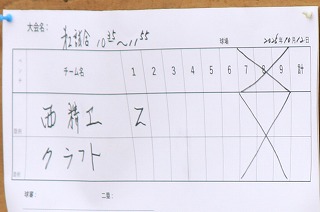 大会名: 练試合 10:35～11:55 球場 2025年10月12日
チーム名 1 2 3 4 5 6 7 8 9 合計
西精工 2
クラフト
球審: 二塁: